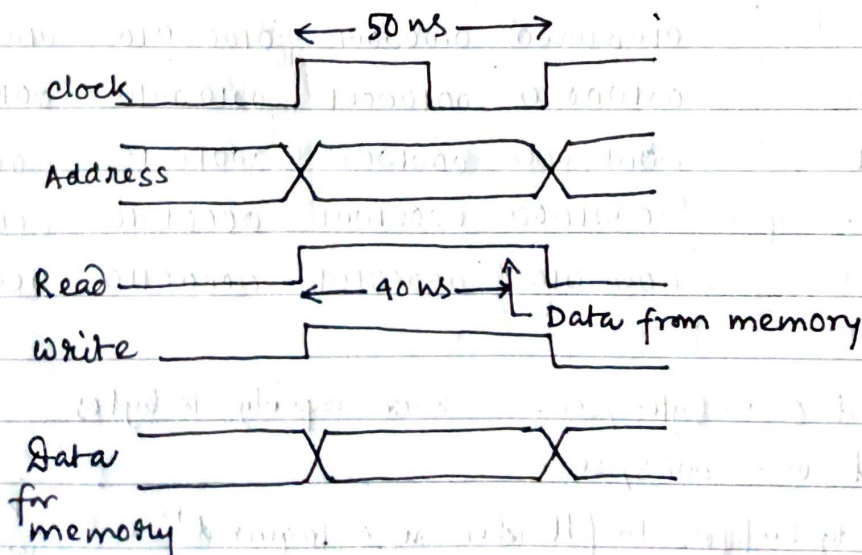 50 ns
clock
Address
Read
40 ns
Data from memory
Write
Data
for
memory